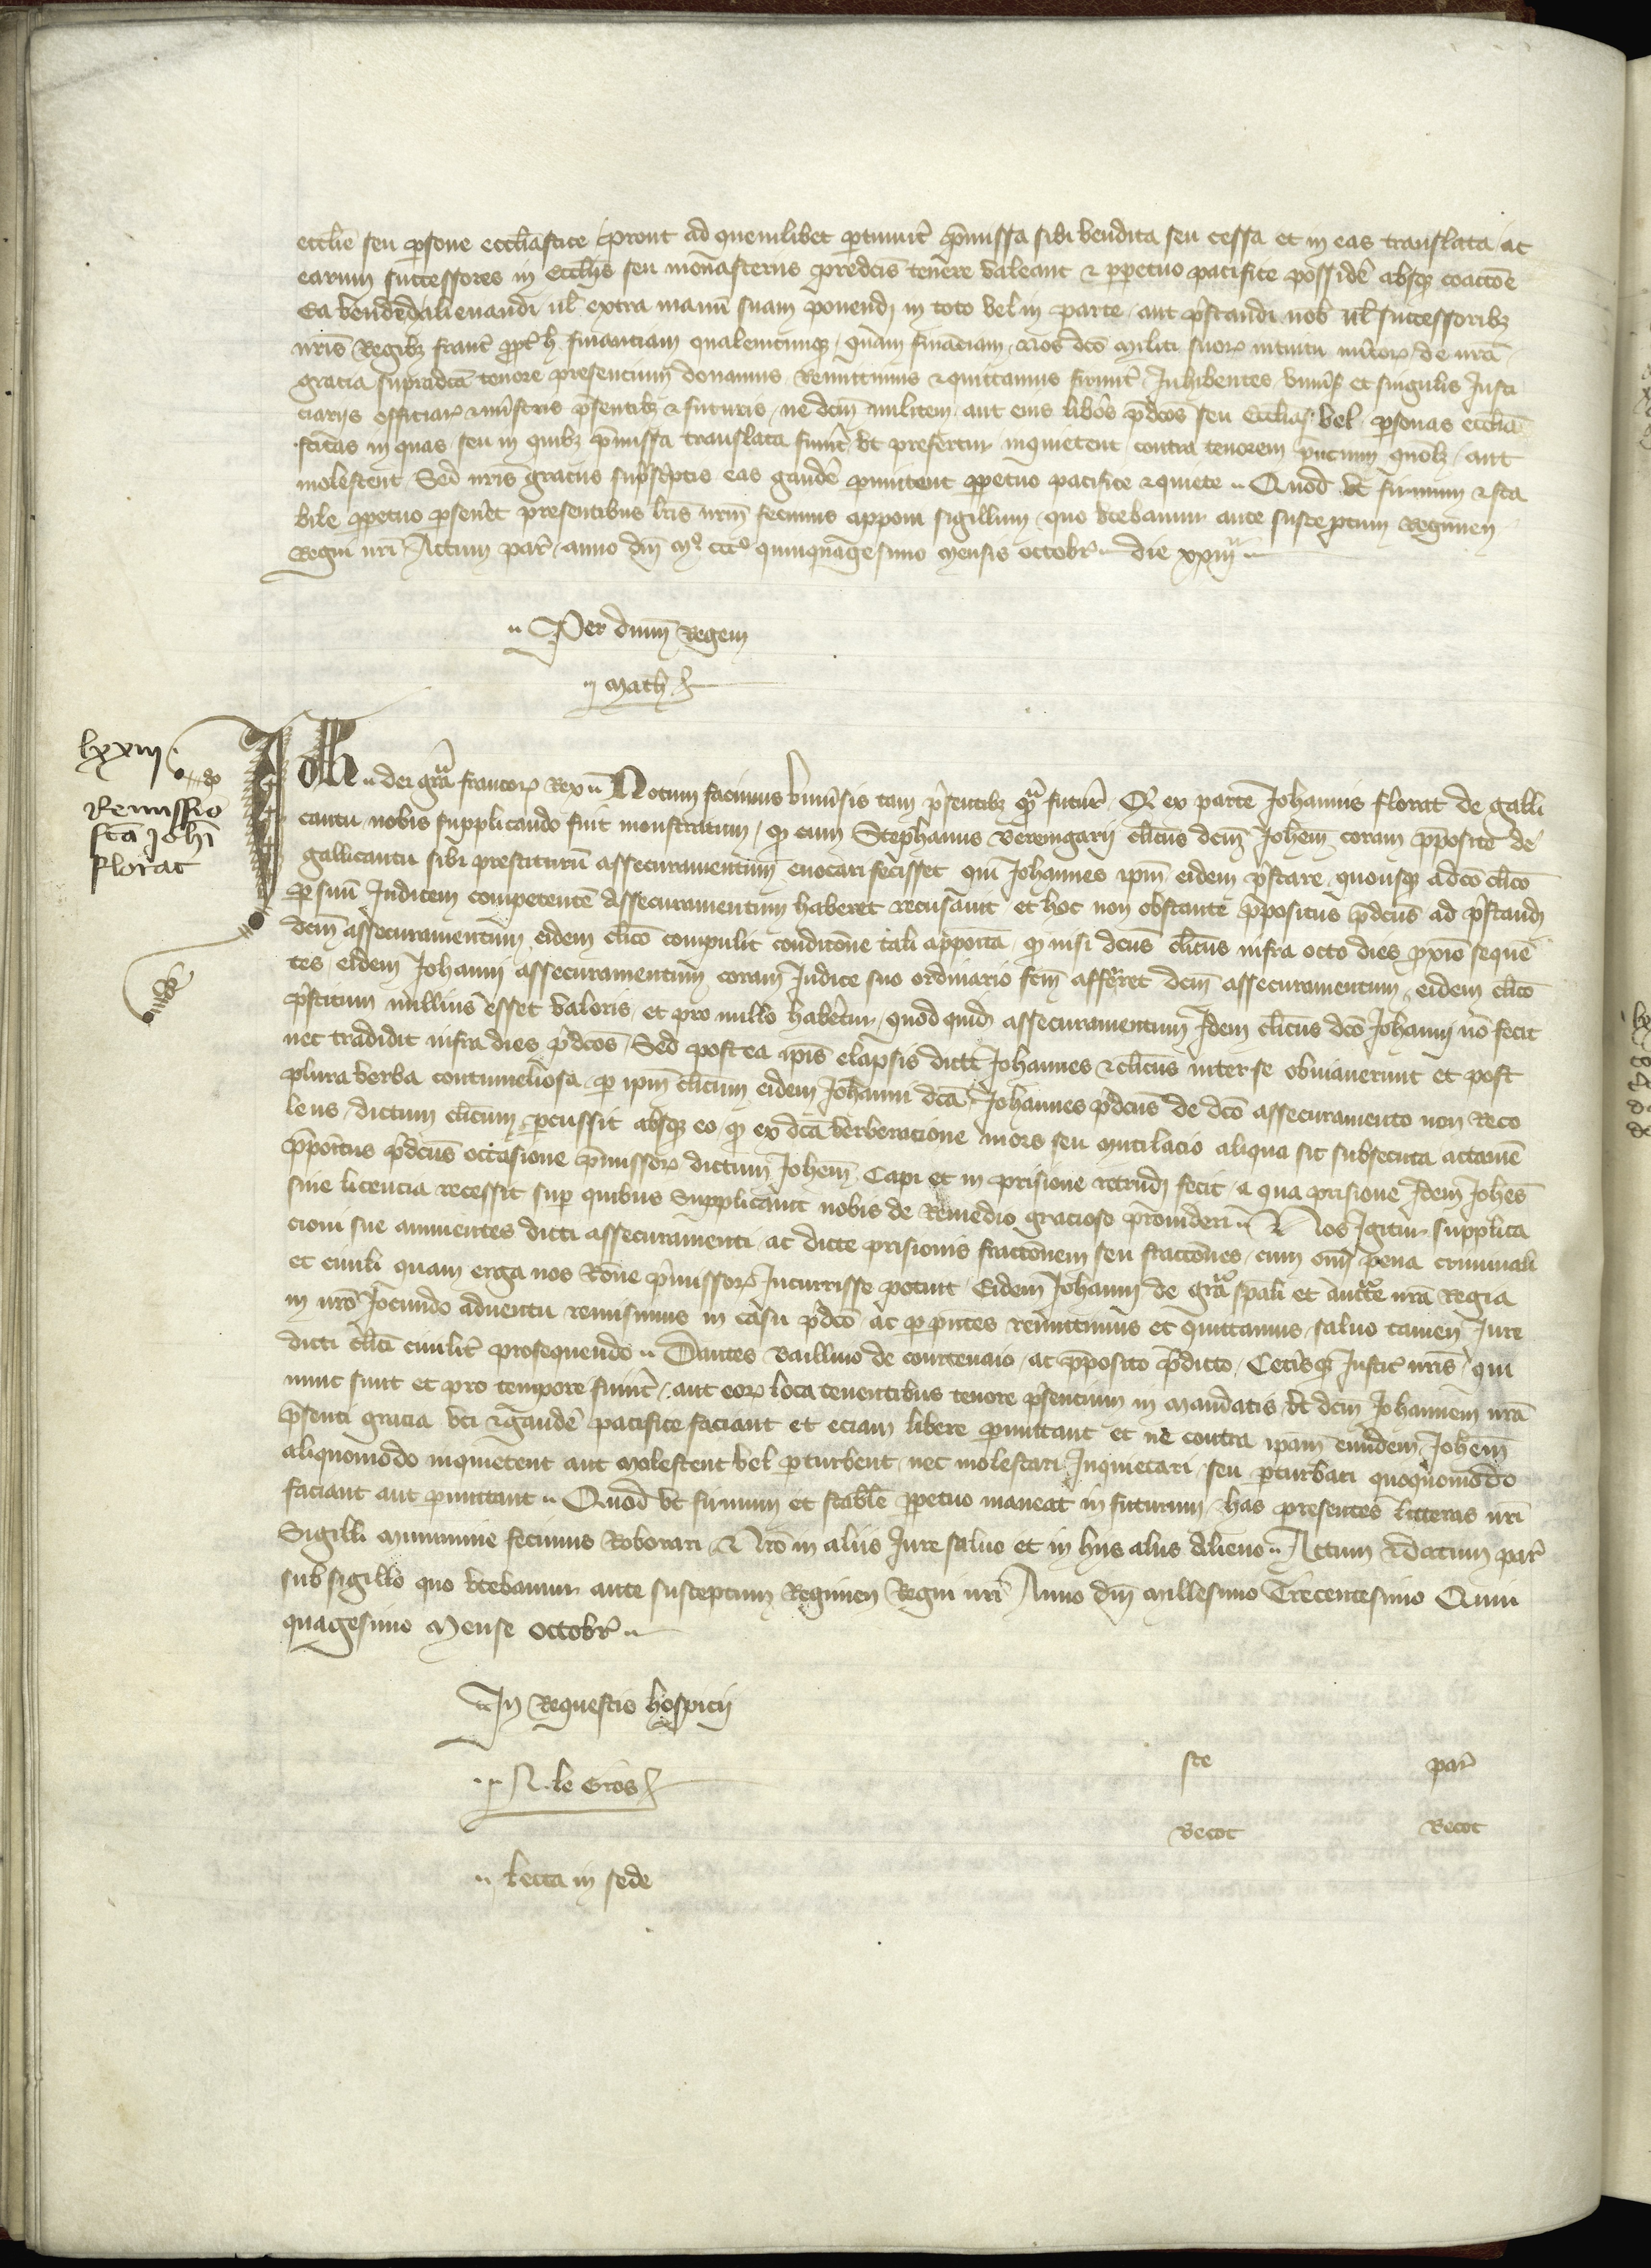 ecclie seu persone ecclastice prout ad quemlibet pertinuit pmissa sibi vendita seu cessa et in eas translata ac
earum successores in ecclijs seu monasteriis predcis tenere valeant & ppetuo pacifice possidere absqz coactoe
Ea vendendi alienandi ul extra manu suam ponendi in toto vel in parte aut prestandi nob ul successoribz
nris Regibz franc propt h financiam qualemcunqz quam finaciam nos dco militi suorum intuitu de nra
gracia supradca tenore presencium donamus Remittimus & quittamus Inhibentes univsis et singulis Justi
ciarijs officiar & ministris psentibz & futuris ne dcm militem aut eius libos pdcos seu ecclias vel personas ecclia
sticas in quas seu in quibz pmissa translata fuint vt prefertur inquietent contra tenorem pntium aut
molestent Sed nris graciis supscptis eas gaudere pmittent ppetuo pacifice & quiete Quod vt firmum & sta
bile ppetuo pseuet presentibus lris nrm fecimus apponi sigillum quo vtebamur ante susceptum Regimen
Regni nri Actum par anno dni mo ccco quinquagesimo mensis octobr die xxiija
Per dnm Regem
Math
lxxiij
Remissio
fca Johi
florat
Joh dei gra francorum Rex Notum facimus univsis tam psentibz qm futur Qd ex parte Johannis florat de galli
cantu nobis supplicando fuit monstratum qd cum Stephanus Berengarij clicus dcm Johem coram pposito de
gallicantu sibi prestiturum assecuramentum euocari fecisset qui Johannes ipm eidem pstare quousqz a dco clico
per suu Judicem competente assecuramentum haberet recusauit et hoc non obstante ppositus pdcus ad pstandum
dcm assecuramentum eidem clico compulit condicione tali apposita qd nisi dcus clicus infra octo dies proximo seque
tes eidem Johanni assecuramentum coram Judice suo ordinario fcm afferret dcm assecuramentum eidem clico
pstitum nullius esset valoris et pro nullo haberetur quod quid assecuramentum Idem clicus dco Johanni no fecit
nec tradidit infra dies pdcos Sed postea ipis elapsis dict Johannes & clicus inter se obuiauerunt et post
plura verba contumeliosa per ipm clicum eidem Johanni dca Johannes pdcus de dco assecuramento non Reco
lens dictum clicum percussit absqz eo qd ex dca verberacione mors seu mutilacio aliqua sit subsecuta attame
ppositus pdcus occasione pmissorum dictum Johem Capi et in prisione retrudi fecit a qua prisione Idem Johes
sine licencia recessit sup quibus Supplicauit nobis de Remedio gracioso prouideri Nos Igitur supplica
cioni sue annuentes dicti assecuramenti ac dicte prisionis fractionem seu fractiones cum omi pena criminali
et ciuili quam erga nos Rone pmissorum Incurrisse potuit Eidem Johanni de gra spali et aucte nra Regia
in nro Jocundo aduentu remisimus in casu pdco ac per pntes remittimus et quittamus saluo tamen Jure
dicti clici ciuilit prosequendo Dantes Baillivo de courtenaio ac pposito pdicto Cetisqz Justic nris qui
nunc sunt et pro tempore fuint aut eorum loca tenentibus tenore psencium in mandatis vt dcm Johannem nra
psenti gracia vti & gaudere pacifice faciant et eciam libere pmittant et ne contra ipam eumdem Johem
aliquomodo inquietent aut molestent vel perturbent nec molestari Inquietari seu perturbari quoquomodo
faciant aut pmittant Quod vt firmum et stabile ppetuo maneat in futurum has presentes litteras nri
Sigilli munimine fecimus Roborari Nro in aliis Jure saluo et in hiis aliis alieno Actum & datum par
sub sigillo quo vtebamur ante susceptum Regimen Regni nri Anno dni millesimo Trecentesimo Quin
quagesimo Mense octobr
In Requestis hospicij
N. le Gros
lecta in sede
fce par
Becot Becot